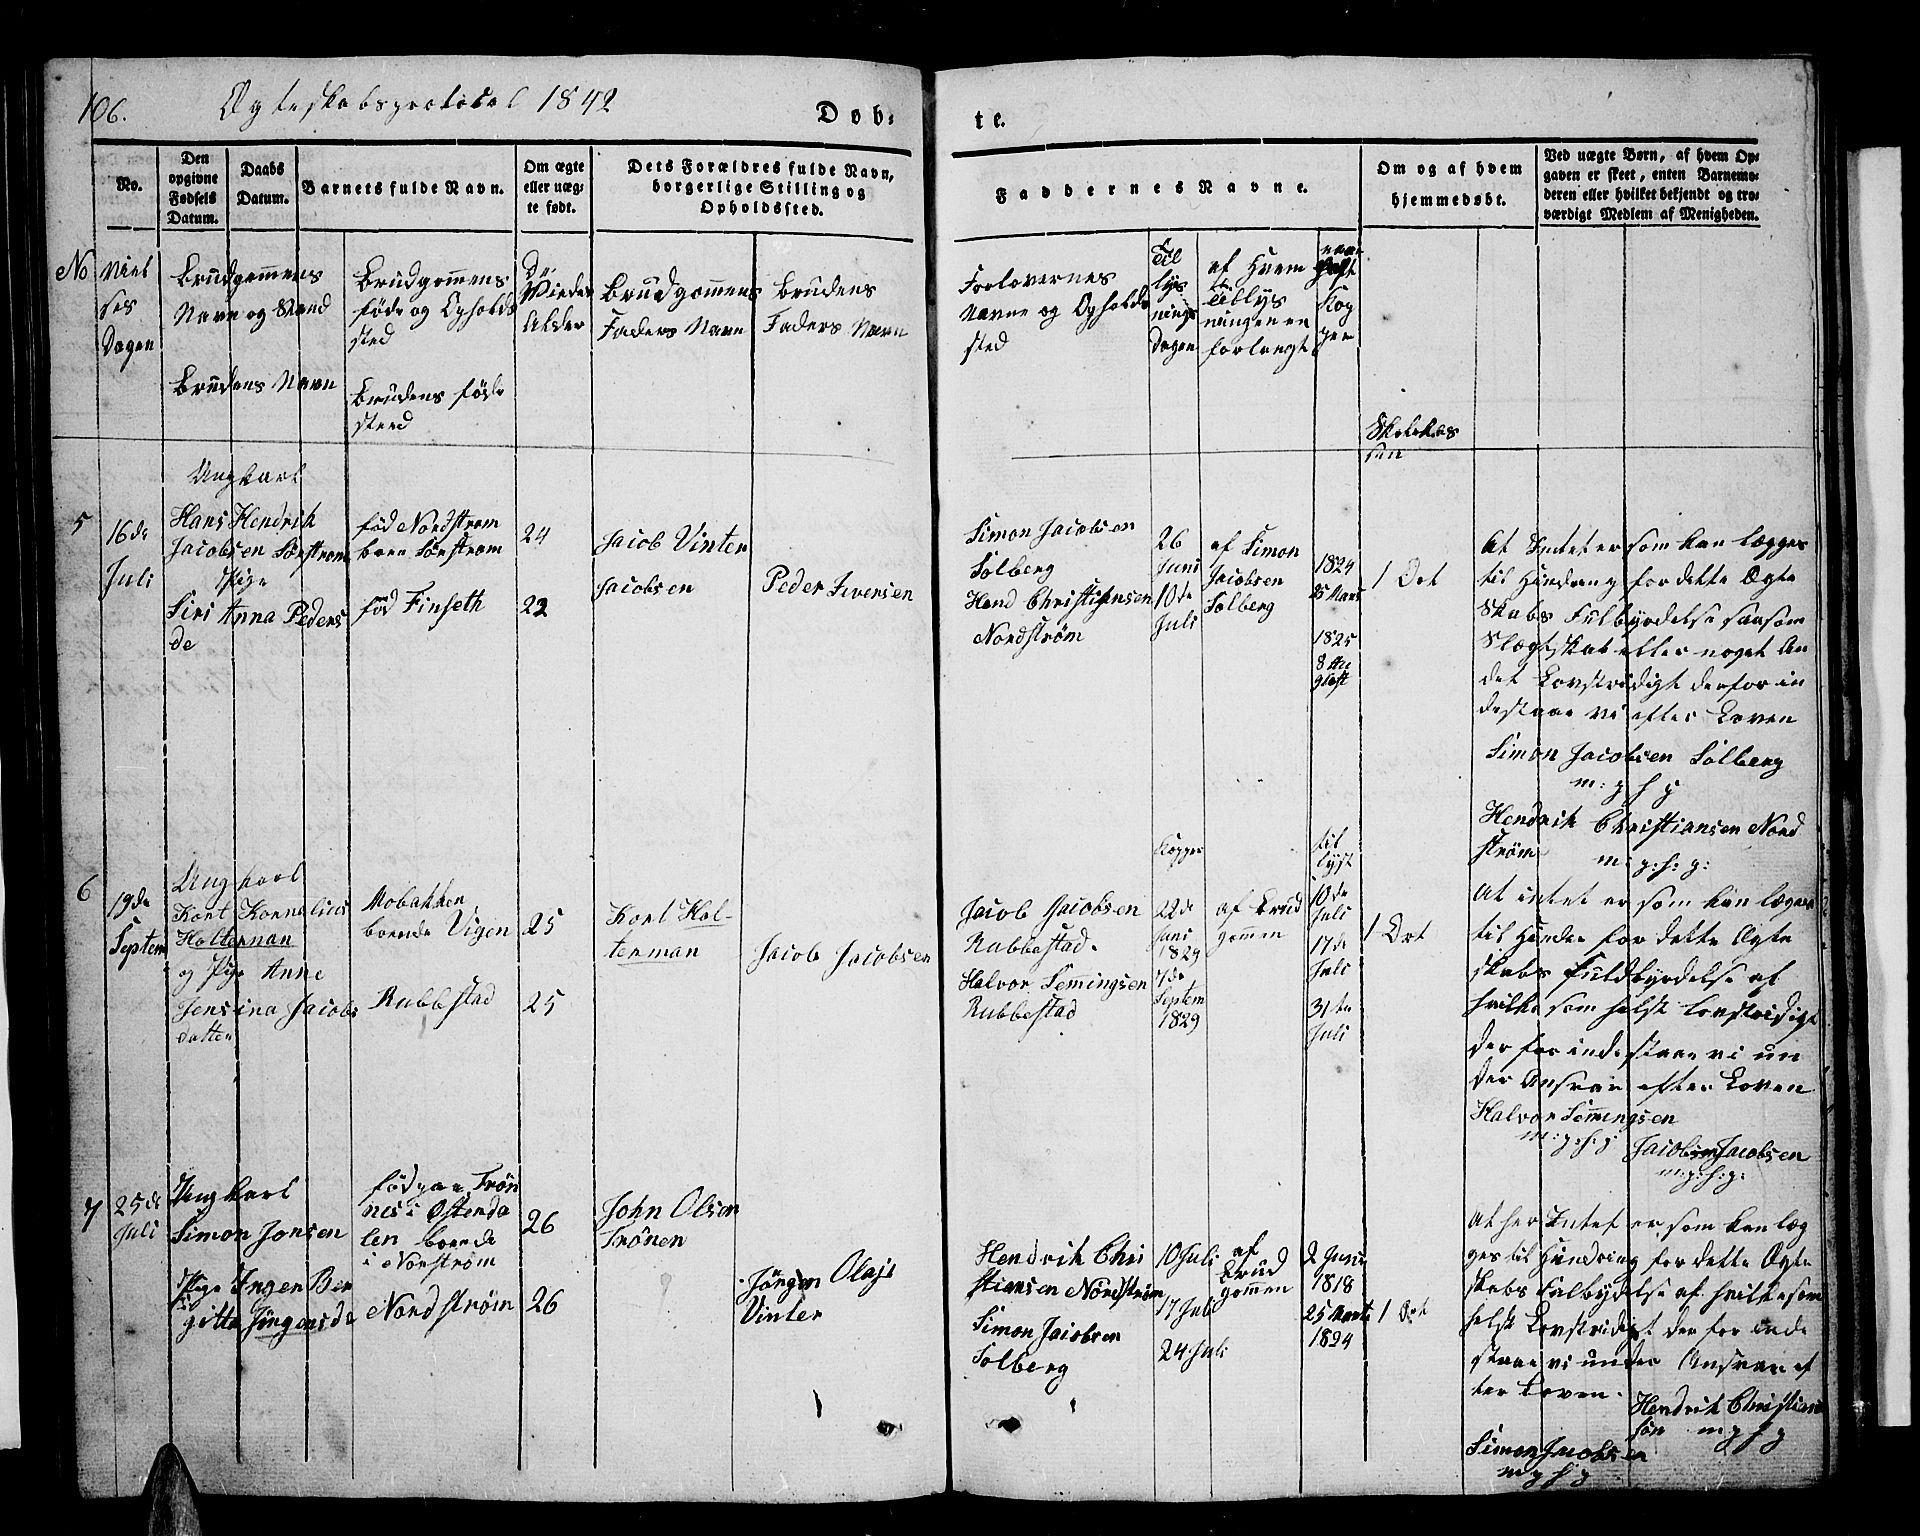 106. Ægteskabsprotocol 1842
Døb-
te.
No.
Den
opgivne
Fødsels
Datum.
Daabs
Datum.
Barnets fulde Navn.
Om ægte
eller uæg-
te født.
Dets Forældres fulde Navn,
borgerlige Stilling og
Opholdssted.
Faddernes Navne.
Om og af hvem
hjemmedøbt.
Ved uægte Børn, af hvem Op-
gaven er skeet, enten Barnemo-
deren eller hvilket bekjendt og tro-
værdigt Medlem af Menigheden.
No
Viel
ses
Dagen
Brudgommens
Navn og Stand
Brudens Navn
Brudgommens
føde og Opholds
sted
Brudens føde
steed
Alder
Brudgommens
Faders Navn
Brudens
Faders Navn
Forlovernes
Navne og Opholds
sted
Til
lys
nings
Dagen
af Hvem
Tillys
ningen en
forlangt
Kop
per
Skolekas
sen
5
16de
Juli
Ungkarl
Hans Hendrik
Jacobsen Sørstrom
Pige
Siri Anna Peders
de
fød Nordstrom
boen Sørstrom
fød Finseth
24
22
Jacob Vinter
Jacobsen
Peder Iversen
Simon Jacobsen
Solberg
Hend Christiansen
Nordstrøm
26
Juni
10de
Juli
af Simon
Jacobsen
Solberg
1824
25 Mars
1825
8 Au
gust
1 Ort
At Intet er som kan lægges
til Hindring for dette Ægte
Skabs Fulbyrdelse saasom
Slægtskab eller noget An
det Lovstridigt derfor in
destaae vi efter Loven
Simon Jacobsen Solberg
m: p h g
Hendrik Christiansen Nord
strøm m: p: h: g:
6
19de
Septem
Ungkarl
Kort Kornelius
Holterman
og Pige Anne
Jensina Jacobs
datter
Mobakken
boende Vigen
Rubbestad
25
25
Kort Hol-
terman
Jacob Jacobsen
Jacob Jacobsen
Rubbestad.
Halvor Semingsen
Rubbestad
Kopper
22de
Juni
1829
7de
Septem
1829
af Brud
gommen
til
lyst
10de
Juli
17de
Juli
31te
Juli
1 Ort
At intet er som kan læges
til Hinder for dette Ægte
skabs Fuldbyrdelse af
hvilke som helst Lovstridigt
der for indestaae vi un
der Ansvar efter Loven
Halvor Semingsen
m: p: h: g
Jacobsen Jacobsen
m: p: h: g:
7
25de
Juli
Ungkarl
Simon Jonsen
Pige Ingen Ber
gitta Jürgensde
fød paa Trøn
nes i Østerda
len boende
i Norstrøm
Nordstrøm
26
26
John Olsen
Trønen
Jörgen Olaji
Vinter
Hendrik Chri
stiansen Nordstrøm
Simon Jacobsen
Solberg
10 Juli
17 Juli
24 Juli
af
Brud
gommen
2 Juni
1818
25 Marts
1824
1 Ort
At her Intet er som kan læg
ges til Hindring for dette Ægte
skabs Falbydelse af hvilke som
helst Lovstridigt der for inde
staae vi under Ansvar ef
ter Loven.
Hendrik Christian
søn m p h g
Simon Jacobsen
m p h g